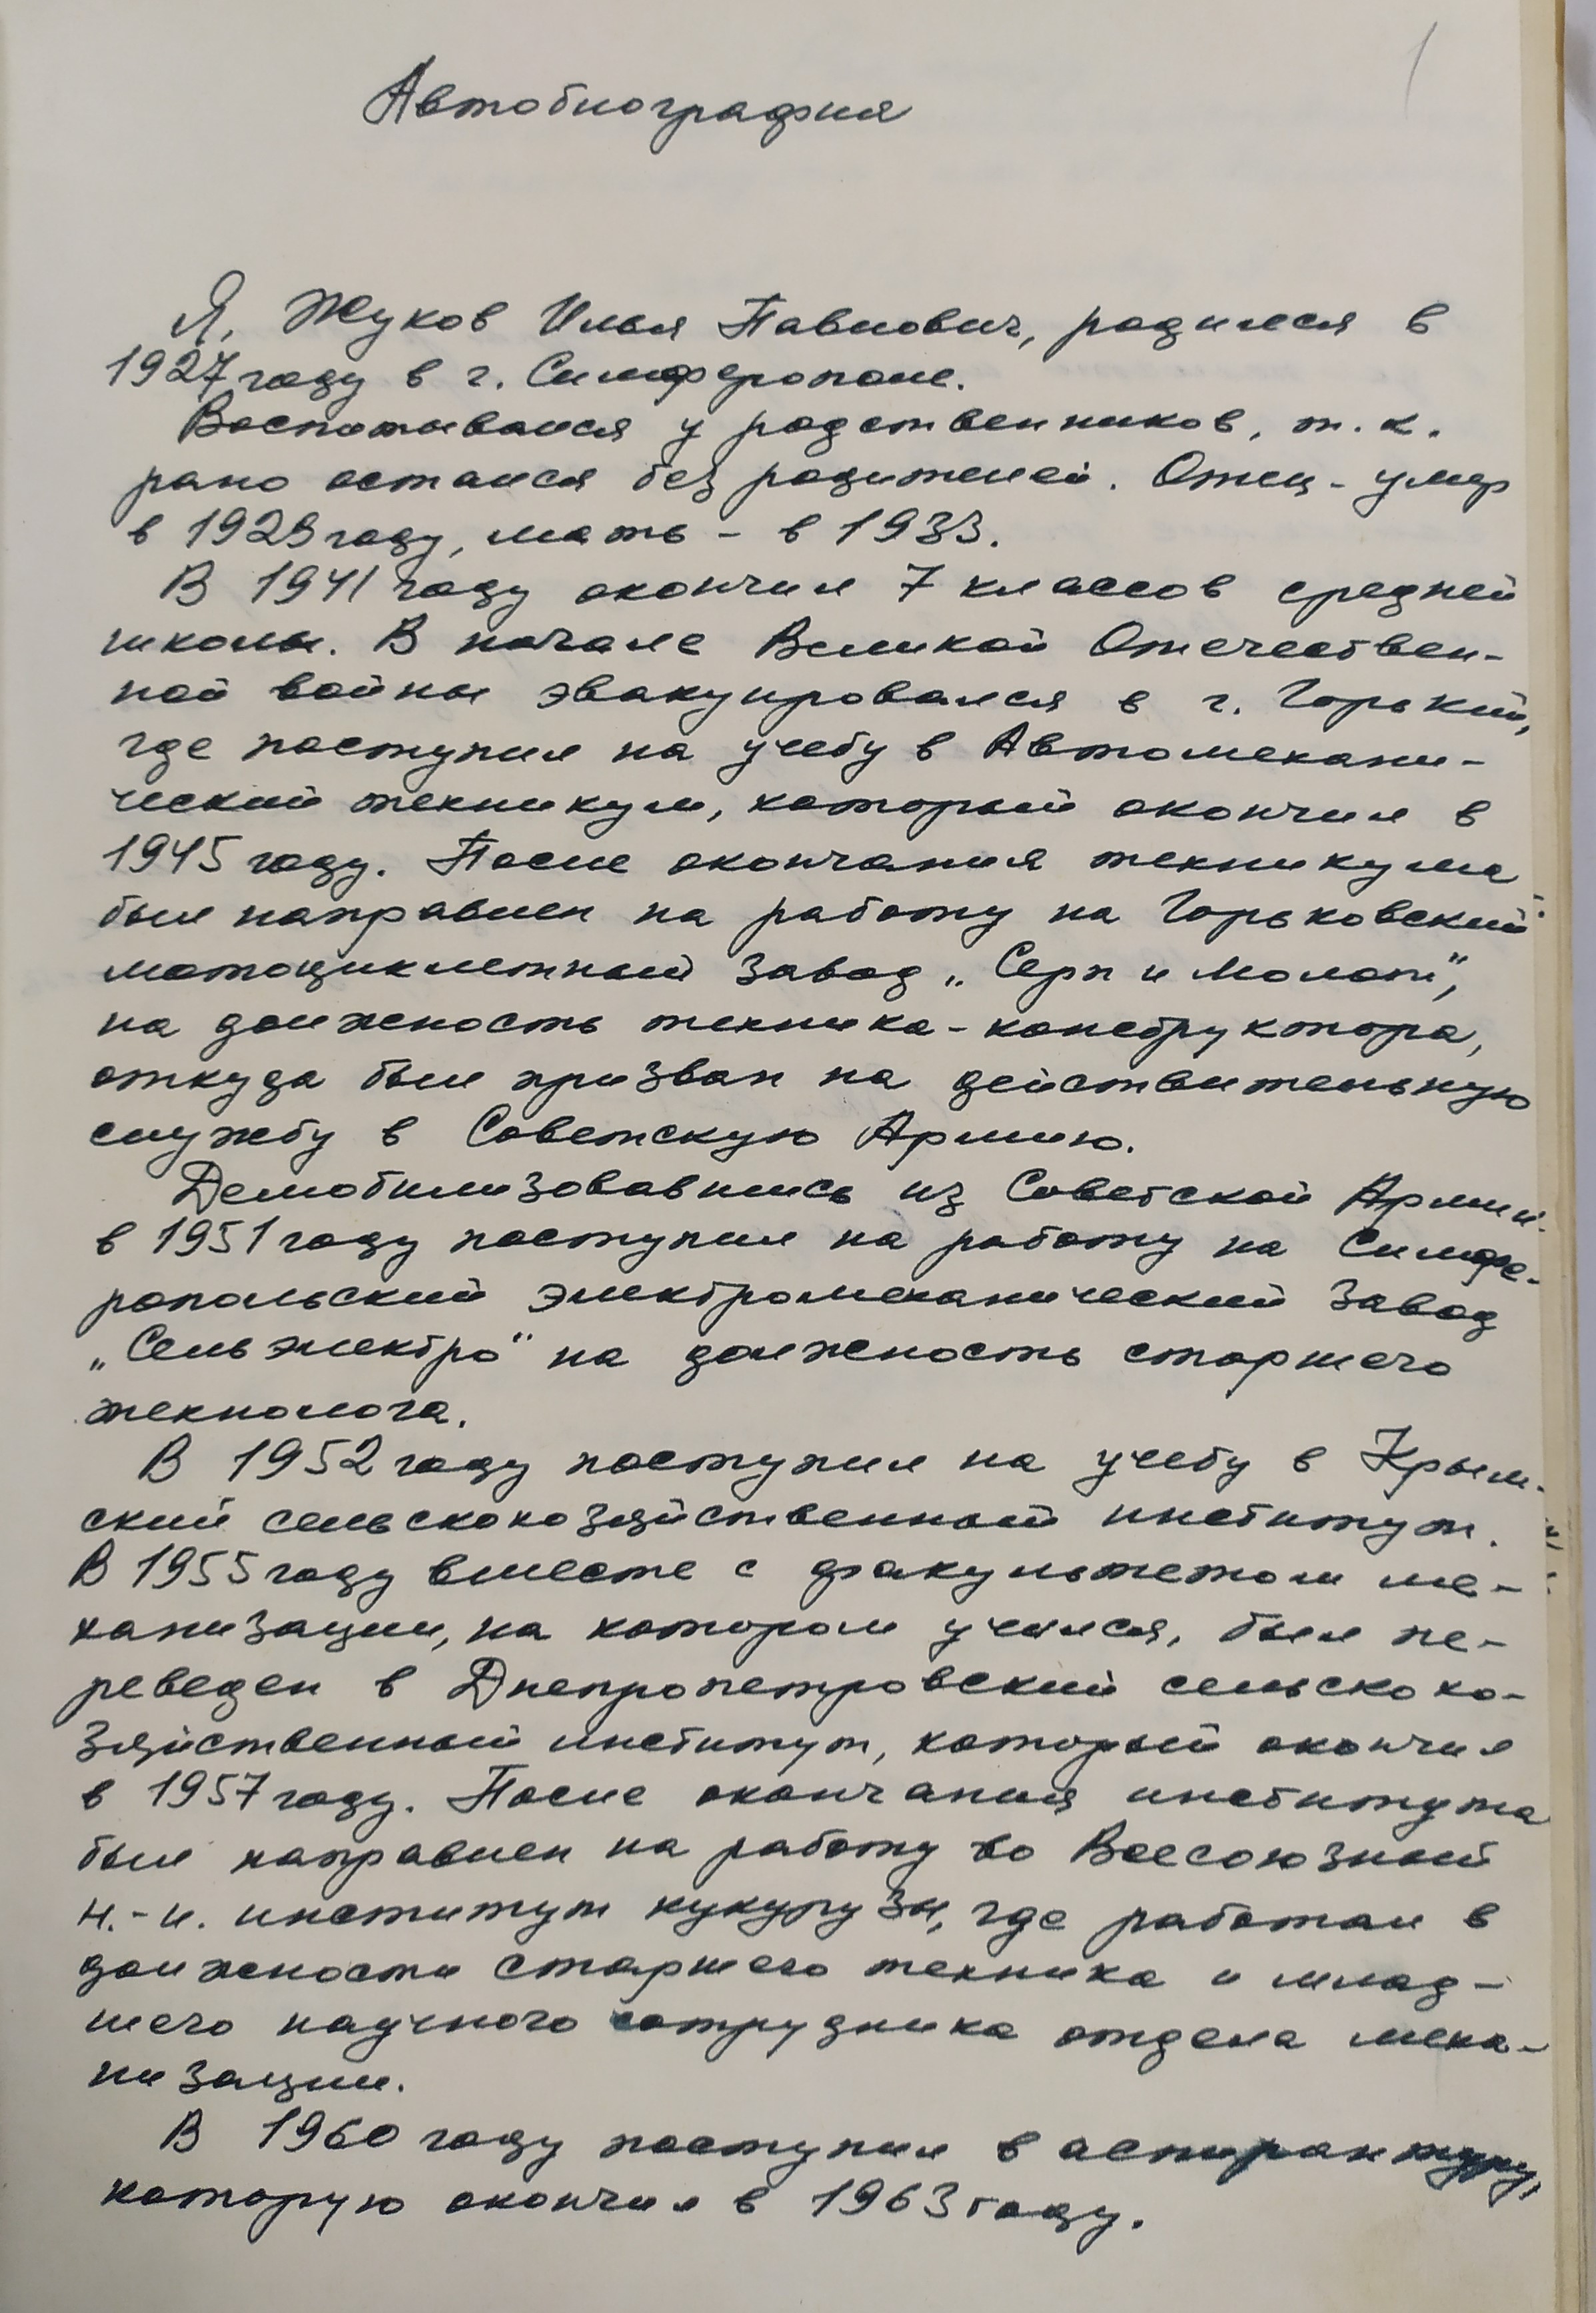 1
Автобиография
Я, Жуков Илья Павлович, родился в
1927 году в г. Симферополе.
Воспитывался у родственников, т.к.
рано остался без родителей. Отец - умер
в 1929 году, мать - в 1933.
В 1941 году окончил 7 классов средней
школы. В начале Великой Отечествен-
ной войны эвакуировался в г. Горький,
где поступил на учебу в Автомехани-
ческий техникум, который окончил в
1945 году. После окончания техникума
был направлен на работу на Горьковский
мотоциклетный завод „Серп и Молот",
на должность техника-конструктора,
откуда был призван на действительную
службу в Советскую Армию.
Демобилизовавшись из Советской Армии
в 1951 году поступил на работу на Симфе-
ропольский электромеханический завод
„Сельэлектро" на должность старшего
технолога.
В 1952 году поступил на учебу в Крым-
ский сельскохозяйственный институт.
В 1955 году вместе с факультетом ме-
ханизации, на котором учился, был пе-
реведен в Днепропетровский сельскохо-
зяйственный институт, который окончил
в 1957 году. После окончания института
был направлен на работу во Всесоюзный
н.-и. институт кукурузы, где работал в
должности старшего техника и млад-
шего научного сотрудника отдела меха-
низации.
В 1960 году поступил в аспирантуру,
которую окончил в 1963 году.